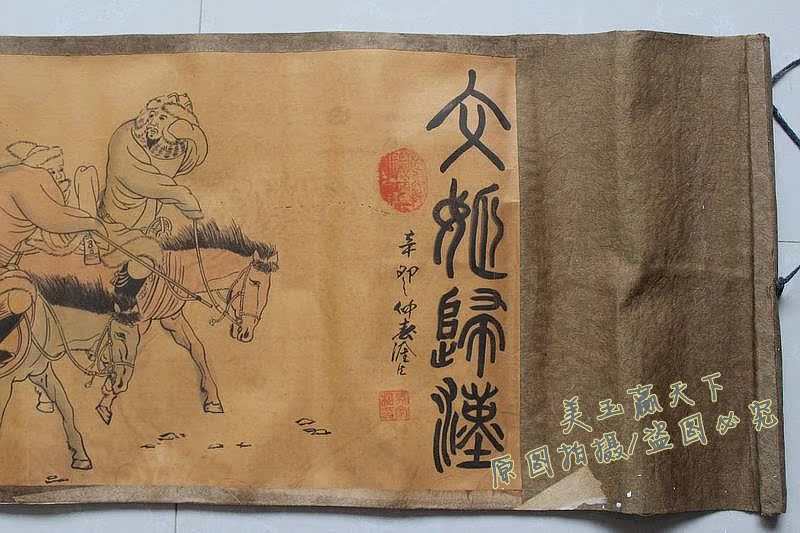 文姬歸漢
辛卯仲春
美玉赢天下
原图拍摄/盗图必究